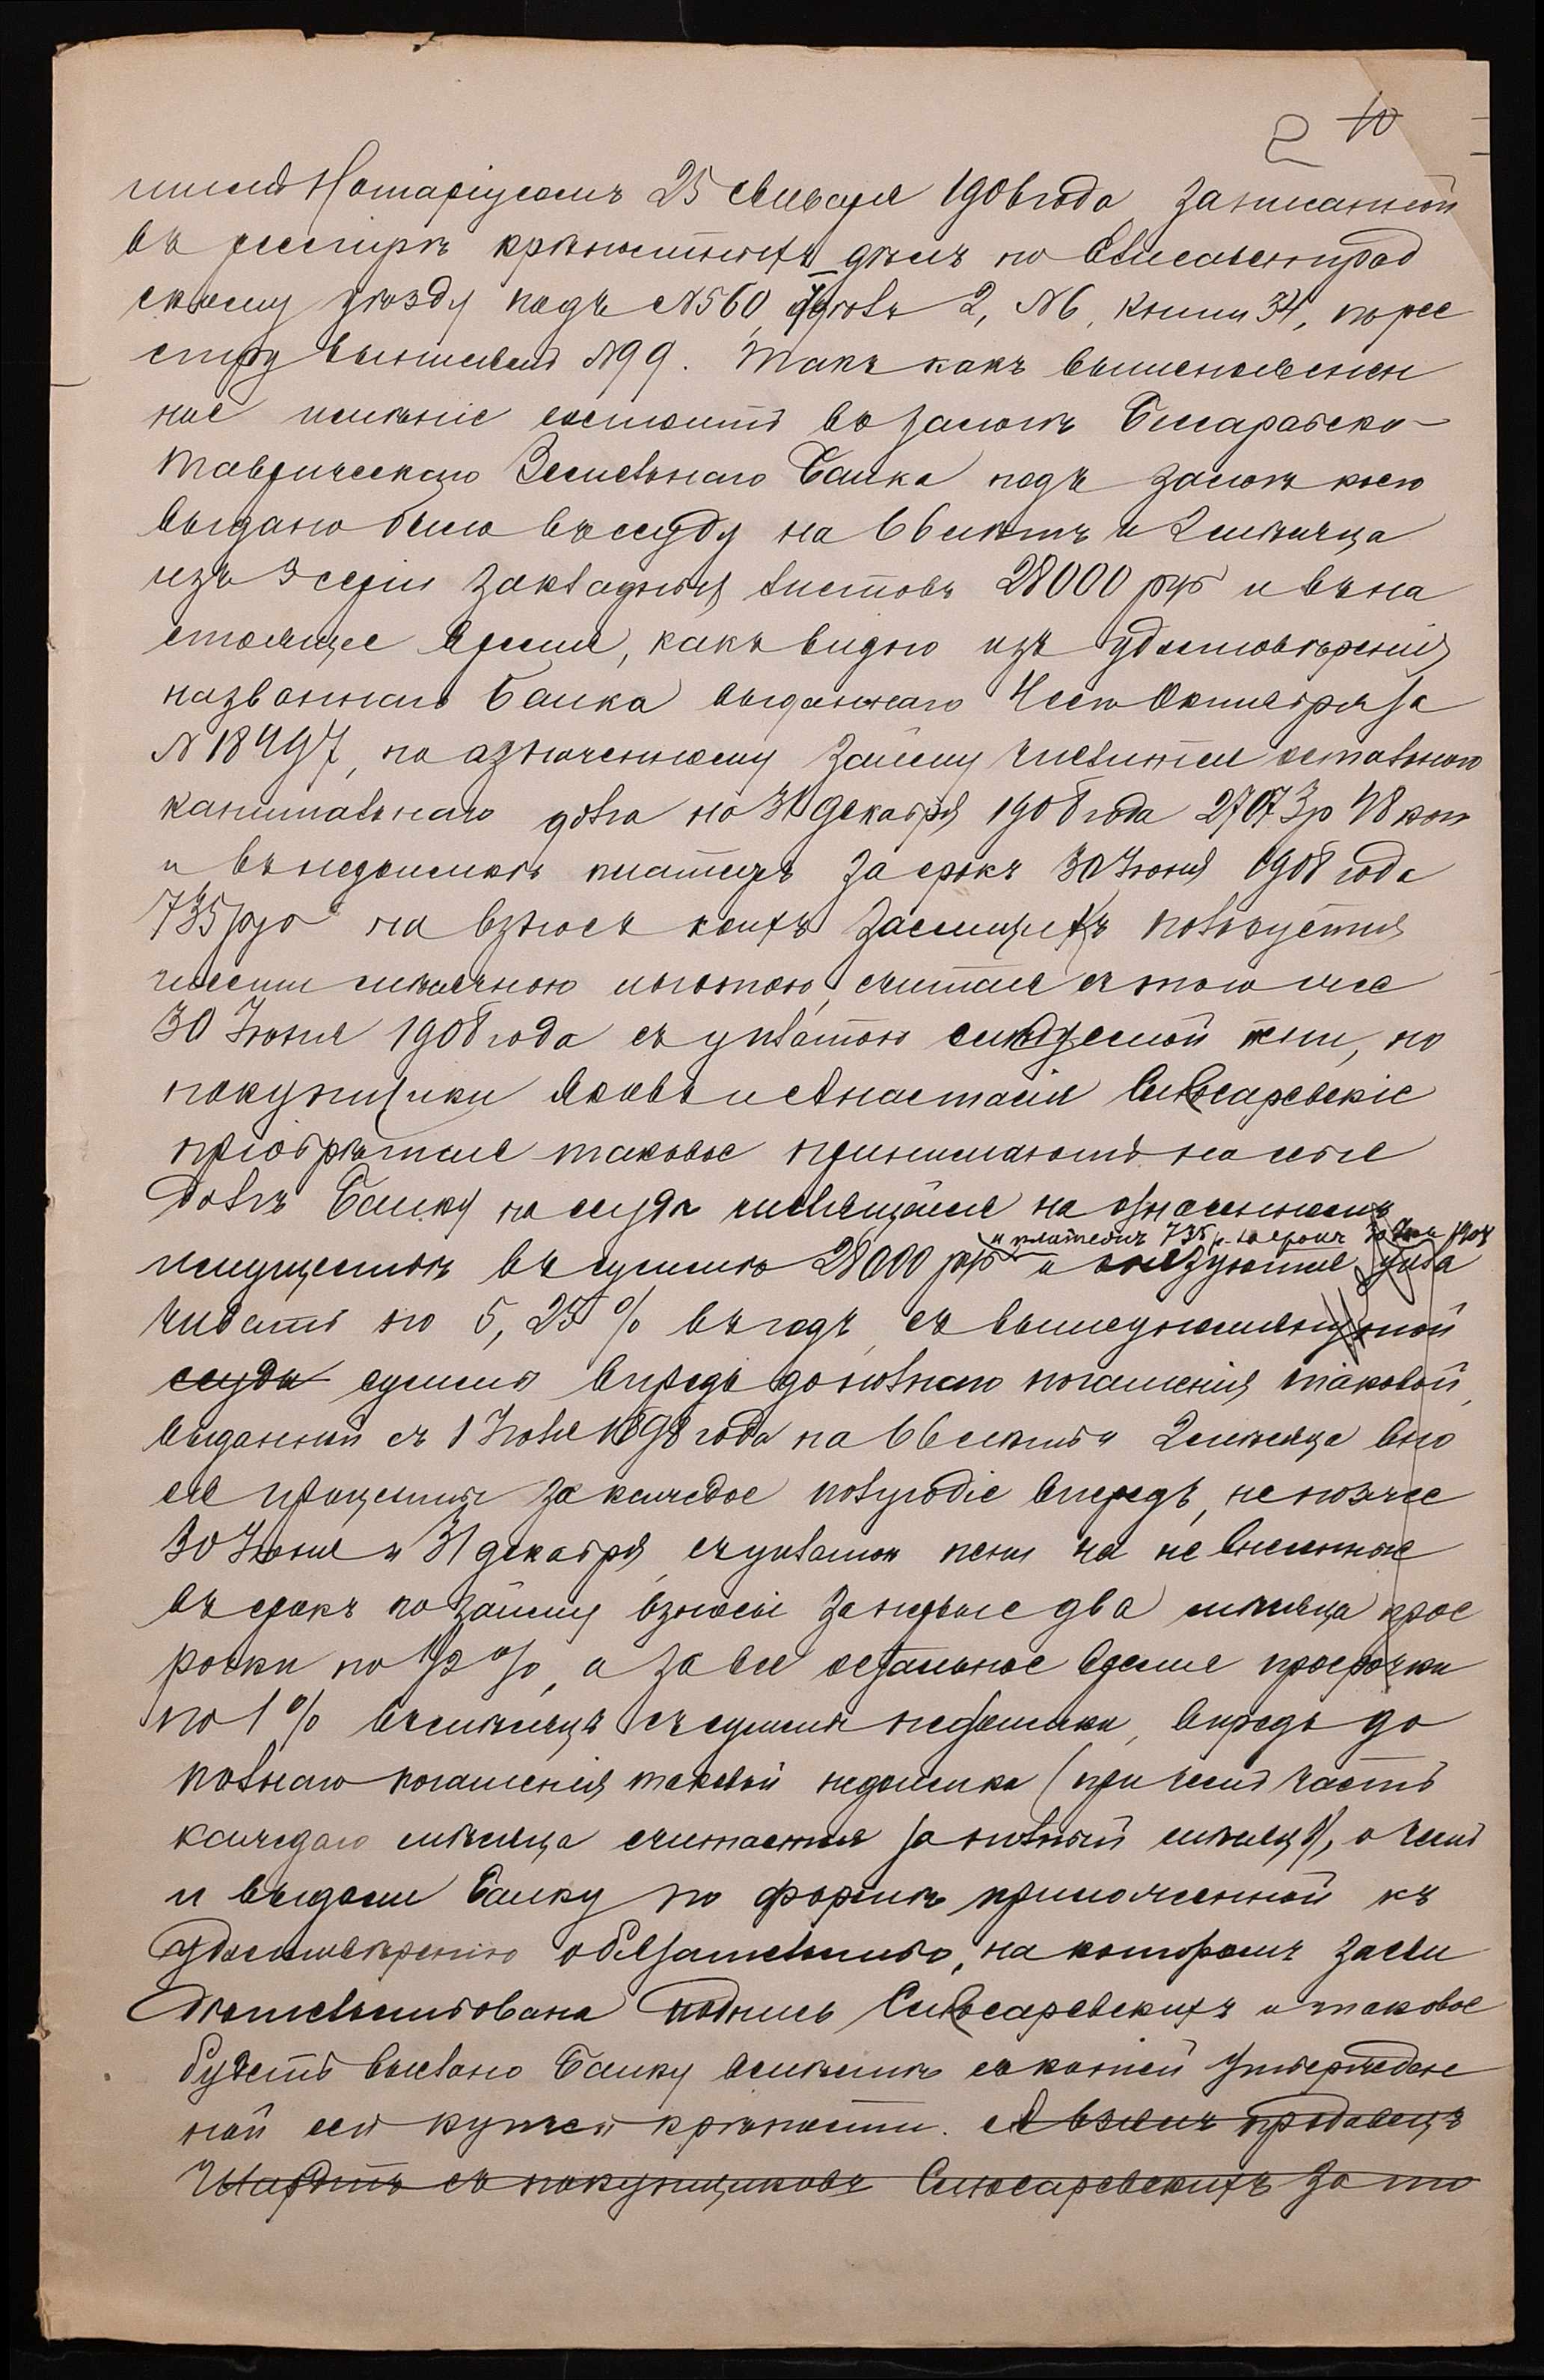 2 10
шимъ Нотаріусомъ 25 Января 1906 года записанной
въ реестръ крѣпостныхъ дѣлъ по Елисаветград
скому уѣзду подъ №560, дѣлъ 2, №6, книги 34, по рее
стру № 99. Такъ какъ вышепоименован
ное имѣніе состоитъ въ залогѣ Бессарабско-
Таврическаго Земельнаго Банка подъ залогъ коего
выдано было въ ссуду на 66 лѣтъ и 2 мѣсяца
изъ 3 серіи закладныхъ листовъ 28000 руб и въ на
стоящее время, какъ видно изъ удостовѣренія
названнаго Банка выданнаго Октября за
№ 18497, по означенному займу числится остальнаго
капитальнаго долга по 31 Декабря 1908 года 27073 р 48 коп
и въ недоимкѣ платежъ за срокъ 30 Іюня 1908 года
735 руб на взносъ коихъ заемщикъ пользуется
шести мѣсячною льготою, считая съ того же
30 Іюня 1908 года съ уплатою пени, но
покупщики Яковъ и Анастасія Слюсаревскіе
пріобрѣтая таковое принимаютъ на себя
долгъ Банку по ссудѣ числящійся на означенномъ
и платежъ 735 р. за срокъ 30 Іюня 1908
имуществѣ въ суммѣ 28000 руб и обязуются упла
чивать по 5,25% въ годъ, съ вышеупомянутой
ссуды суммы впредь до полнаго погашенія таковой,
выданной съ 1 Іюля 1898 года на 66 лѣтъ и 2 мѣсяца вно
ся проценты за каждое полугодіе впередъ, не позже
30 Іюня и 31 декабря, съ уплатою пени на не внесенные
въ срокъ по займу взносы за первые два мѣсяца прос
рочки по 1/2 %, а за все остальное время просрочки
по 1% въ мѣсяцъ съ суммы недоимки, впредь до
полнаго погашенія таковой недоимки (при чемъ часть
каждаго мѣсяца считается за полный мѣсяцъ), о чемъ
и выдали Банку по формѣ приложенной къ
удостовѣренію обязательство, на которомъ засви
дѣтельствована подпись Слюсаревскихъ и таковое
будетъ выслано Банку вмѣстѣ съ копіей утвержден
ной сей купчей крѣпости. А взялъ продавецъ
съ покупщиковъ Слюсаревскихъ за то